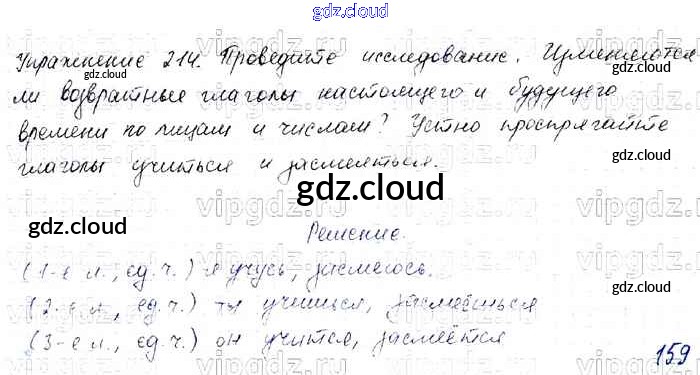 gdz.cloud
Упражнение 214. Проведите исследование. Изменяются
gdz.cloud gdz.cloud
ли возвратные глаголы настоящего и будущего
времени по лицам и числам? Устно проспрягайте
gdz.cloud
глаголы учиться и засмеяться.
gdz.cloud
gdz.cloud gdz.cloud
vipgdz.ru vipgdz.ru vipgdz.ru
Решение.
(1-е л., ед.ч.) я учусь, засмеюсь.
(2-е л., ед.ч.) ты учишься, засмеёшься
(3-е л., ед.ч.) он учится, засмеётся
159